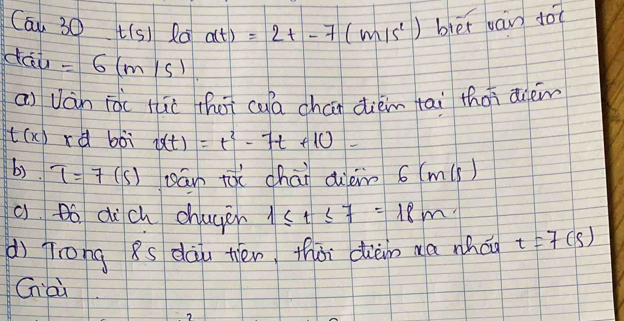 Câu 30 t(s) là a(t) = 2t - 7 (m/s²) biết vận tốc
đầu = 6 (m/s)
a) Vận tốc tức thời của chất điểm tại thời điểm
t(x) xđ bởi v(t) = t² - 7t + 10
b). T = 7 (s) vận tốc chất điểm 6 (m/s)
c). Độ dịch chuyển 1 ≤ t ≤ 7 = 18 m.
d) Trong 8s đầu tiên, thời điểm xa nhất t = 7 (s)
Giải